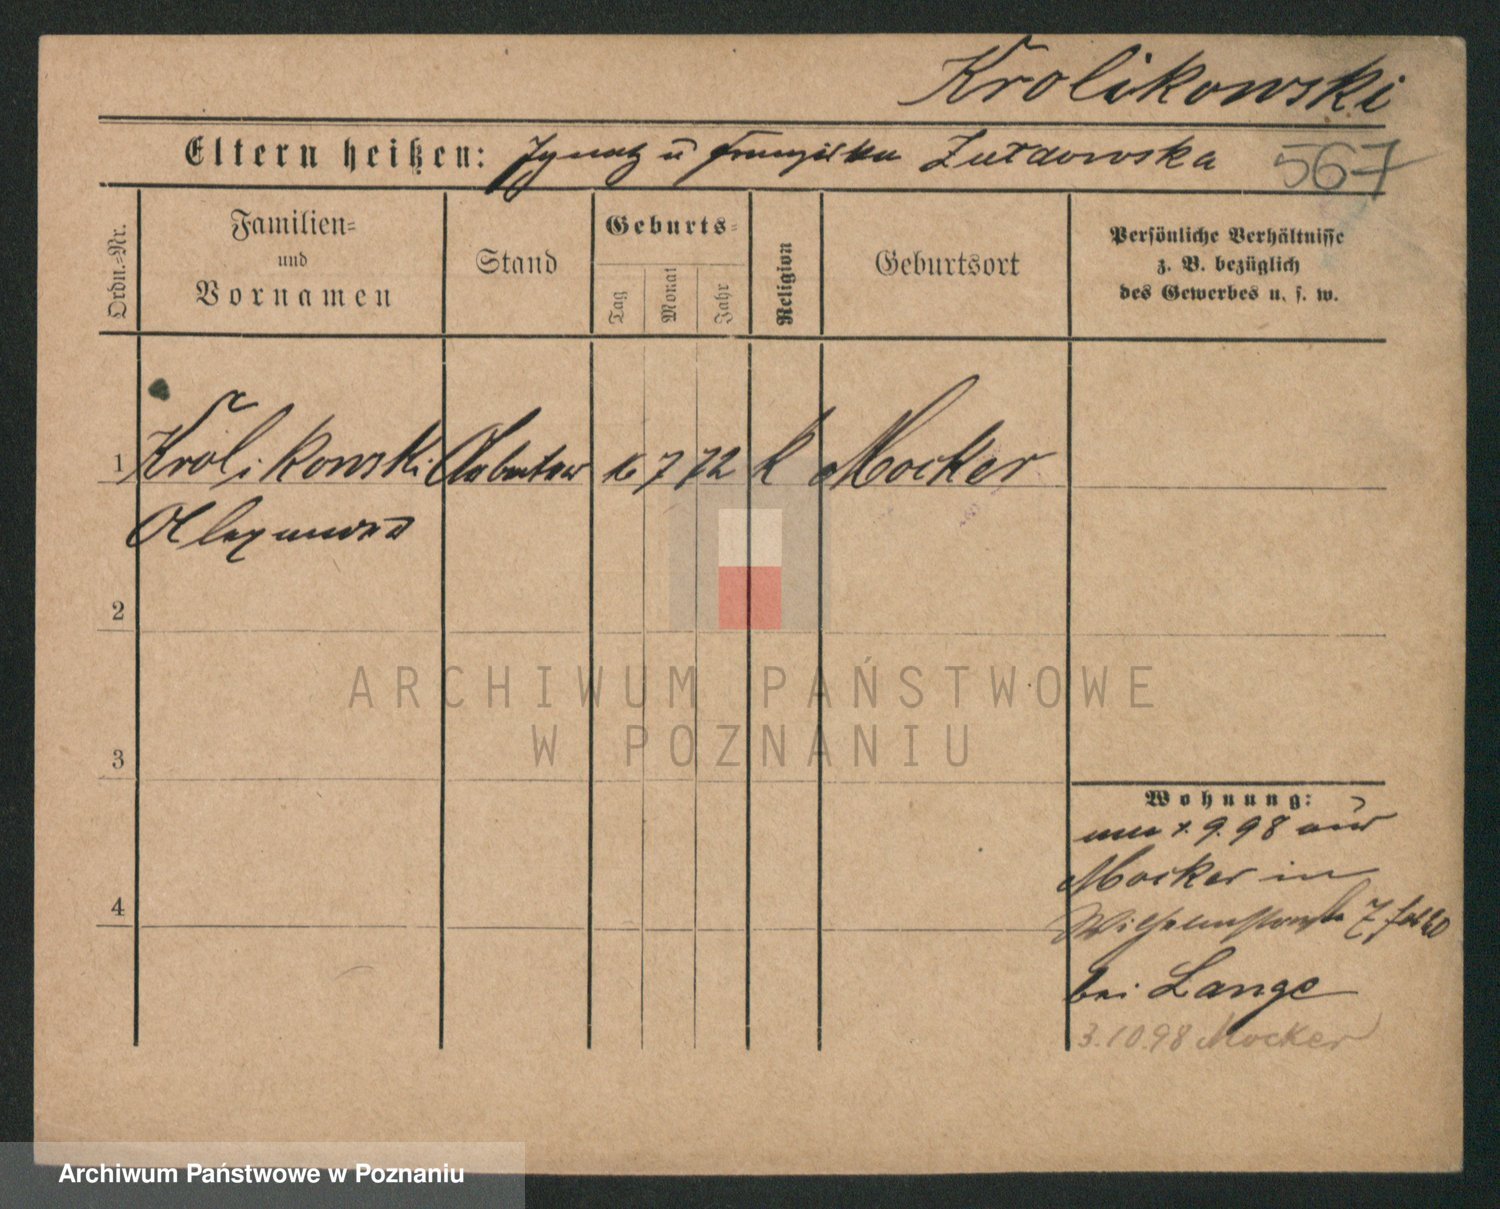 Krolikowski
Eltern heißen: Ignatz u Franziska Zurdowska
567
Ordn.-Nr.
Familien-
und
Vornamen
Stand
Geburts-
Tag
Monat
Jahr
Religion
Geburtsort
Persönliche Verhältnisse
z. B. bezüglich
des Gewerbes u. s. w.
1 Krolikowski 7 72 k Mocker
Alexander
2
3
4
Wohnung:
9.98 aus
Mocker in
7
bei Lange
3.10.98 Mocker
ARCHIWUM PAŃSTWOWE
W POZNANIU
Archiwum Państwowe w Poznaniu